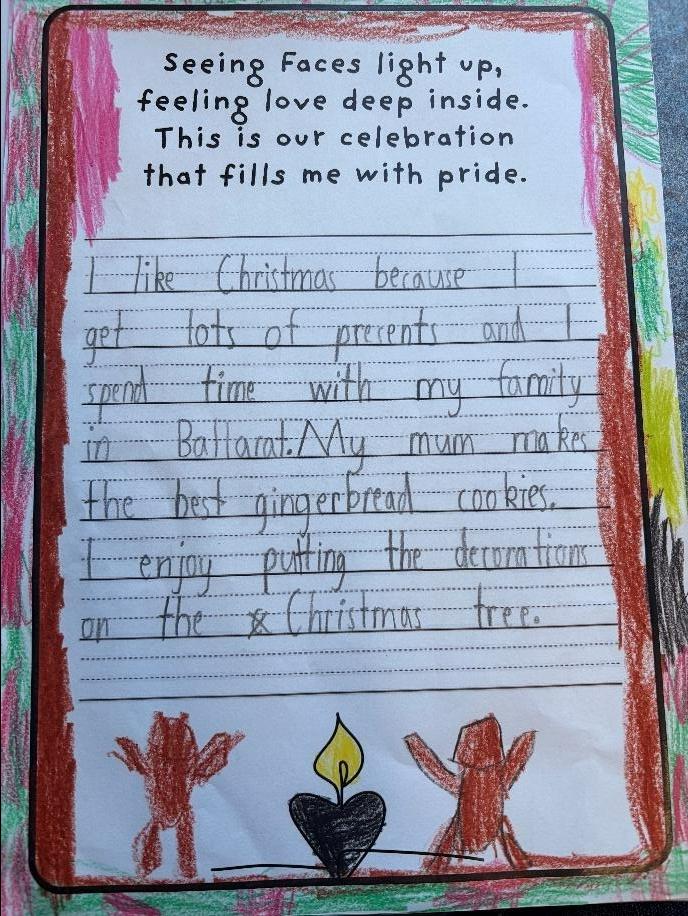 Seeing Faces light up,
feeling love deep inside.
This is our celebration
that fills me with pride.
I like Christmas because I
get lots of presents and I
spend time with my family
in Ballarat. My mum makes
the best gingerbread cookies.
I enjoy putting the decorations
on the Christmas tree.